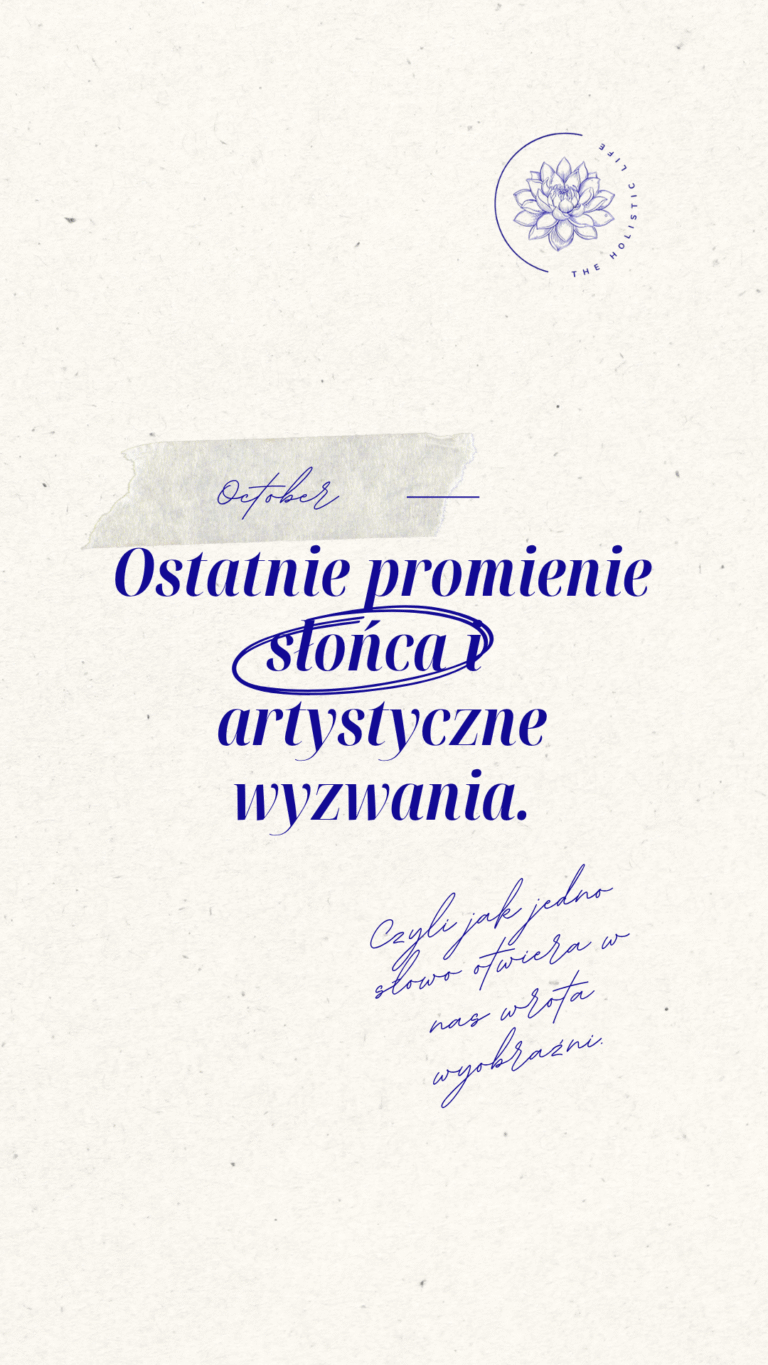 THE HOLISTIC LIFE
October
Ostatnie promienie
słońca i
artystyczne
wyzwania.
Czyli jak jedno
słowo otwiera w
nas wrota
wyobraźni.